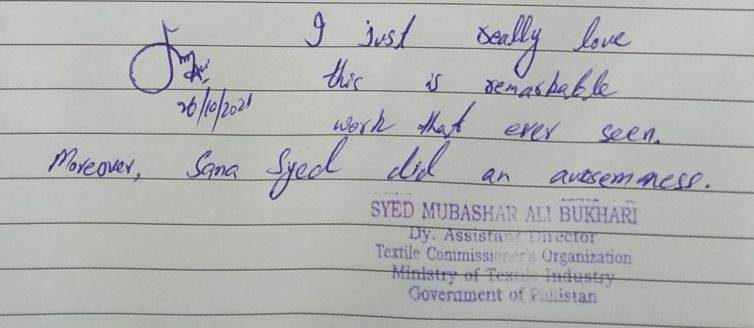 I just really love
this is remarkable
26/10/2021
work that ever seen.
Moreover, Sana Syed did an awesemness.
SYED MUBASHAR ALI BUKHARI
Dy. Assistant Director
Textile Commissioner's Organization
Ministry of Textile Industry
Government of Pakistan